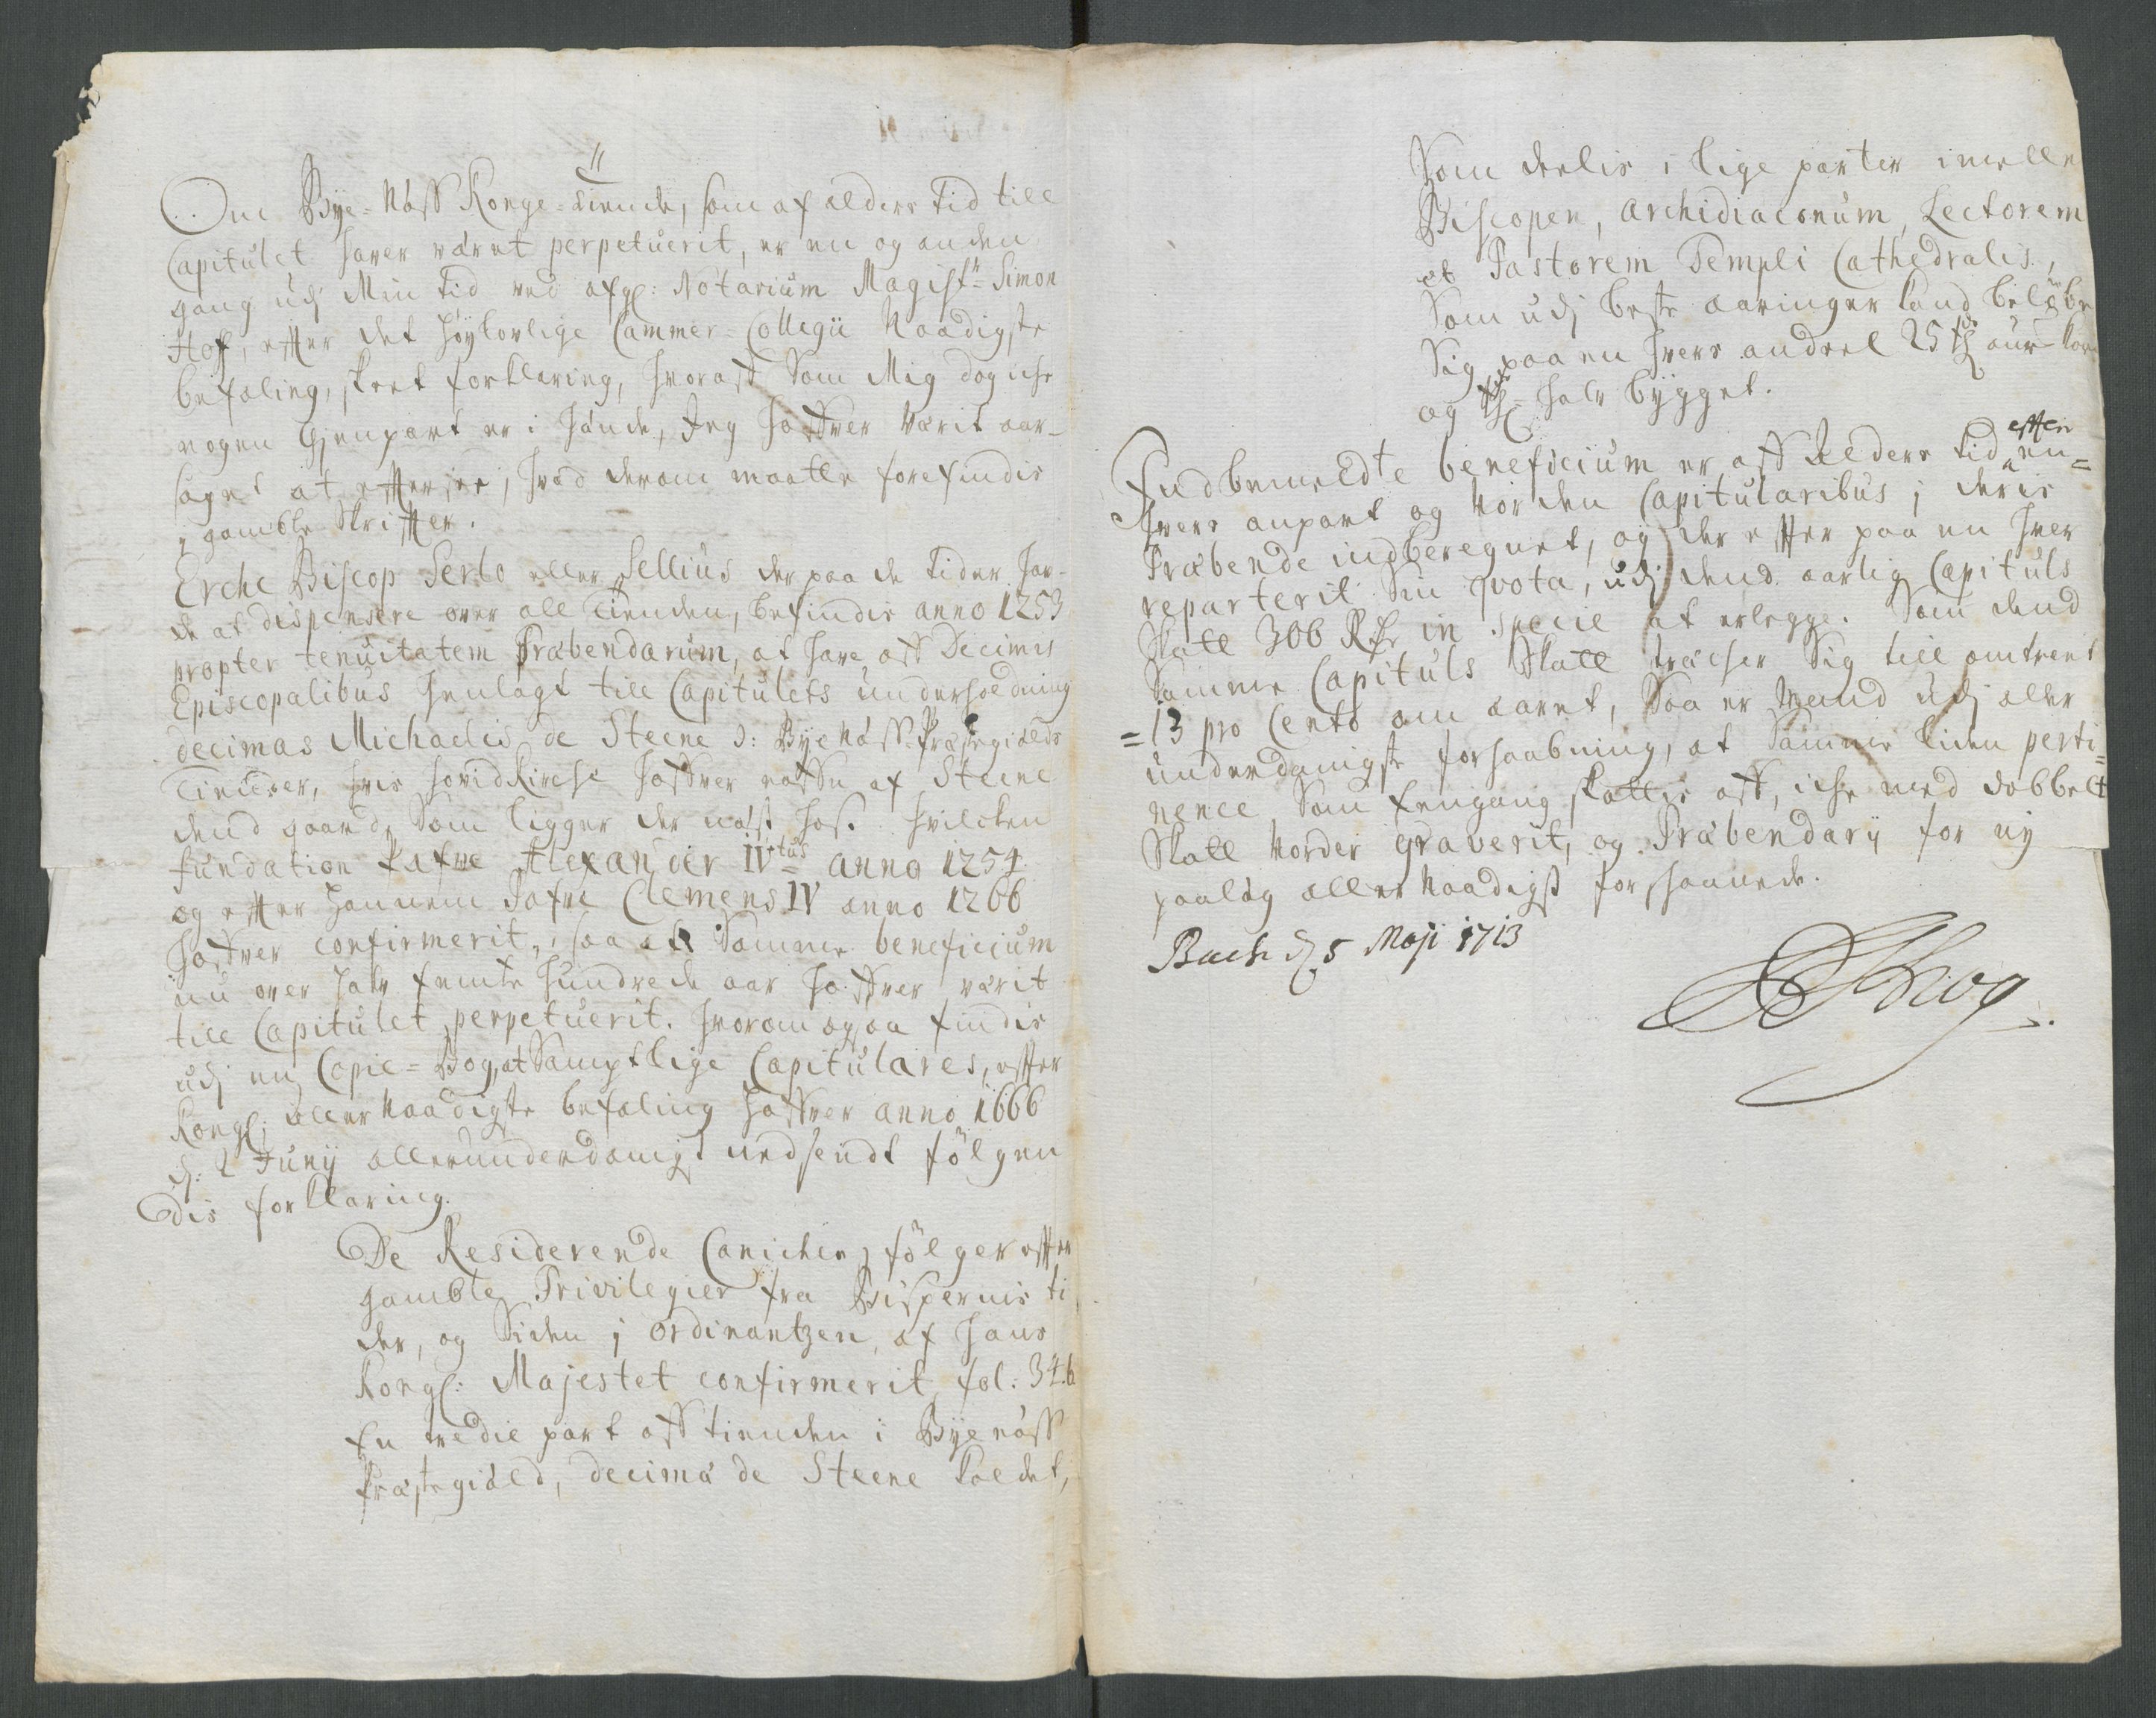 Om Bye-Næss Konge-Tiende, som af alders tid till
Capitulet hafver været perpetuerit, er en og anden
gang udj Min tid ved afg: Notarium Magistr Simon
Hof, efter det höylovlige Cammer-Collegii Naadigste
befaling, skeet forklaring, hvoraff som Mig dog iche
nogen Gienpart er i hænde, Jeg haffver været aar-
saget at eftersee, hvad derom maatte forefindis
j gamble skriffter.
Erche Biscop Serlo eller Sellius der paa de tider haf-
de at dispensere over all Tienden, befindis anno 1253
propter tenuitatem Præbendarum, at have aff Decimis
Episcopalibus henlagt till Capitulets underholdning
decimas Michaelis de Steene ɔ: Bye Næss Præstegields
Tiender, hvis hovidkirche haffver naffn af Steene
dend gaard, som ligger der næst hos. hvilchen
fundation Pafve Alexander IVtus anno 1254
og effter hannem Pafve Clemens IV anno 1266
haffver confirmerit, saa at samme beneficium
nu over halv femte hundrede aar haffver værit
till Capitulet perpetuerit. hvorom ogsaa findis
udj en Copie-Bog, at samptlige Capitulares, effter
Kongl: aller Naadigste befaling haffver anno 1666
d: 2 Junij allerunderdanigst nedsendt fölgen
dis forklaring.
De Residerende Canicher, fölger effter
gamble Privilegier fra Bispernis ti
der, og siden j ordinantzen, af hans
Kongl: Majestet confirmerit, fol: 34.b
En tredie part aff tienden i Byenæss
Præstegiæld, decima de Steene kaldet,
som deelis i lige parter imelle
Biscopen, Archidiaconum, Lectorem
et Pastorem Templi Cathedralis,
som udj beste aaringer kand belöbe
sig paa en hvers andeel 25 aur
og halv bygget.
Indbemeldte beneficium er aff Alders tid effter en=
hvers anpart og Vorden Capitularibus j deris
Præbende indberegnet, og der effter paa en hver
reparterit sin qvota, udj dend aarlig Capituls
Skatt 306 Rdr in specie at erlegge. Som dend
Samme Capituls Skatt strächer sig till omtrent
=13 pro Cento om aaret, Saa er Mand udj aller
underdanigste forhaabning, at Samme liden perti=
nence som Eengang skattis aff, iche med dobbelt
Skatt Vorder graverit, og Præbendarij for ny
paalæg aller Naadigst forskaanede.
Bach d 5 Maji 1713